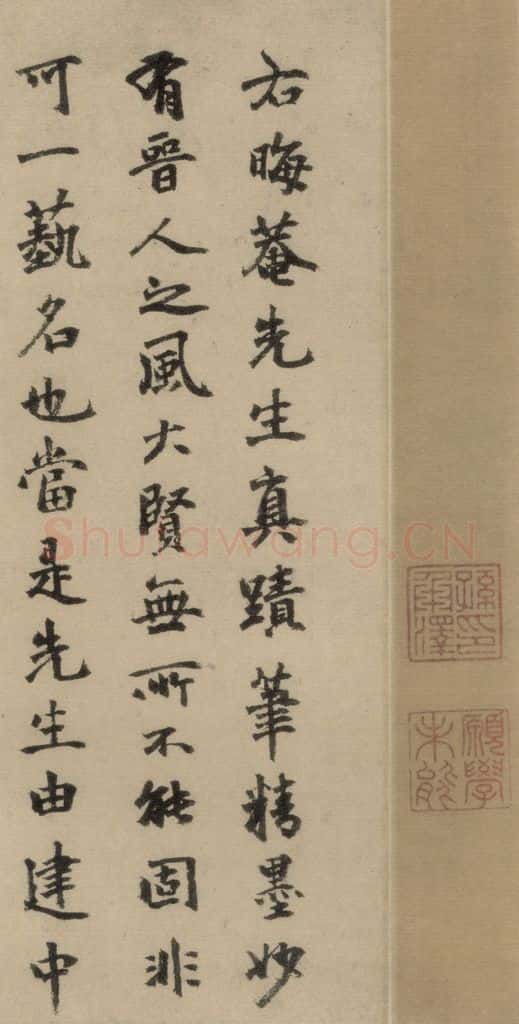 右晦菴先生真蹟筆精墨妙
有晉人之風大賢無所不能固非
可一藝名也當是先生由建中
Shufawang.CN
孫印承澤
願學未能